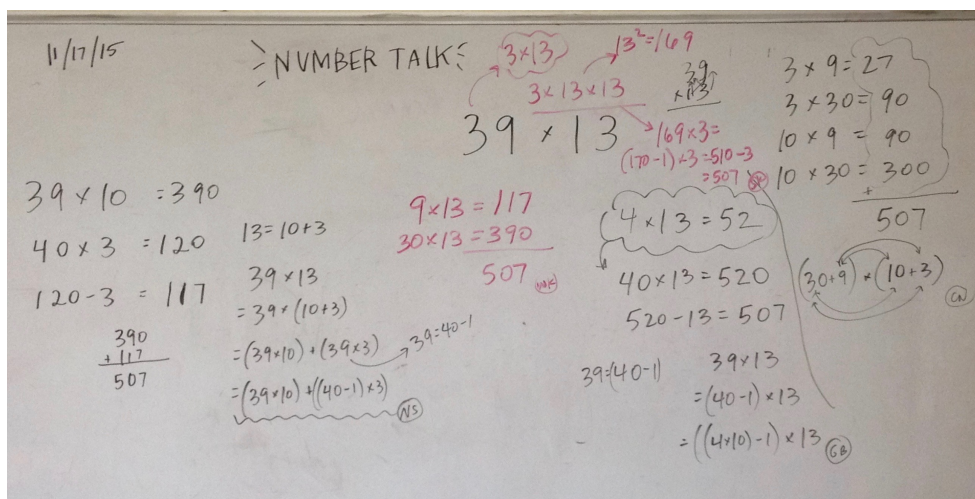 11/17/15
NUMBER TALK
3×13
13²=169
3×13×13
39 × 13
39
×13
169×3=
(170-1)×3=510-3
=507
3 × 9 = 27
3 × 30 = 90
10 × 9 = 90
10 × 30 = 300
+
507
(30+9) × (10+3)
CN
39 × 10 = 390
40 × 3 = 120
120 - 3 = 117
390
+ 117
507
13=10+3
39 × 13
= 39 × (10+3)
= (39×10) + (39×3)
39=40-1
= (39×10) + ((40-1)×3)
NS
9×13 = 117
30×13 = 390
507
4 × 13 = 52
40 × 13 = 520
520 - 13 = 507
39=(40-1)
39×13
= (40-1) × 13
= ((4×10)-1) × 13
GB